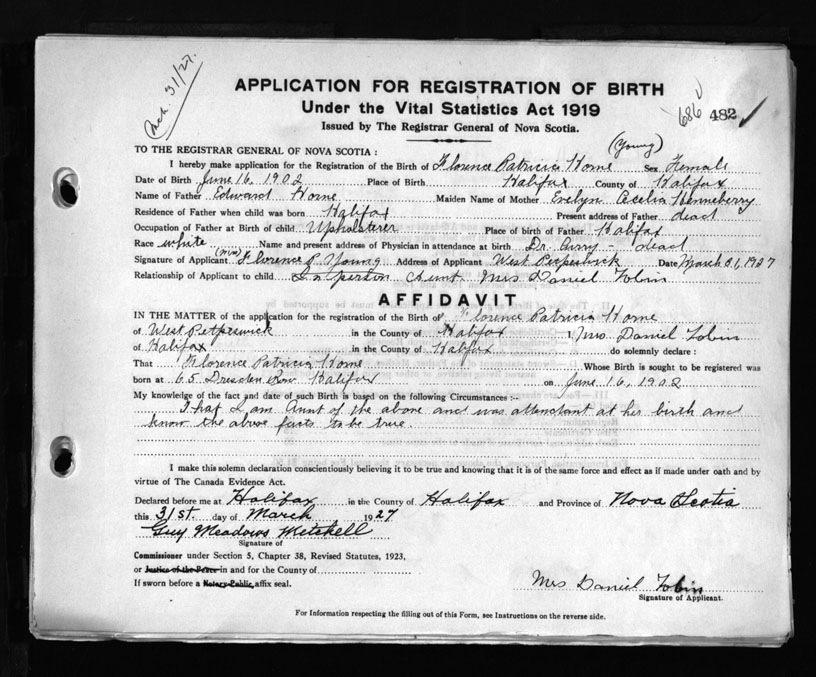 Ack. 31/27.
APPLICATION FOR REGISTRATION OF BIRTH
Under the Vital Statistics Act 1919
686 482
Issued by The Registrar General of Nova Scotia.
TO THE REGISTRAR GENERAL OF NOVA SCOTIA : (Young)
I hereby make application for the Registration of the Birth of Florence Patricia Horne Sex Female
Date of Birth June 16, 1902 Place of Birth Halifax County of Halifax
Name of Father Edward Horne Maiden Name of Mother Evelyn Cecelia Henneberry
Residence of Father when child was born Halifax Present address of Father dead
Occupation of Father at Birth of child Upholsterer Place of birth of Father Halifax
Race white Name and present address of Physician in attendance at birth Dr. - dead
Signature of Applicant (Mrs) Florence P. Young Address of Applicant West Petpeswick Date March 31, 1927
Relationship of Applicant to child In person & Aunt. Mrs Daniel Tobin
AFFIDAVIT
IN THE MATTER of the application for the registration of the Birth of Florence Patricia Horne
of West Petpeswick in the County of Halifax I, Mrs Daniel Tobin
of Halifax in the County of Halifax do solemnly declare :
That Florence Patricia Horne Whose Birth is sought to be registered was
born at 65 Dresden Row Halifax on June 16, 1902
My knowledge of the fact and date of such Birth is based on the following Circumstances :-
That I am Aunt of the above and was attendant at her birth and
know the above facts to be true.
I make this solemn declaration conscientiously believing it to be true and knowing that it is of the same force and effect as if made under oath and by
virtue of The Canada Evidence Act.
Declared before me at Halifax in the County of Halifax and Province of Nova Scotia
this 31st. day of March 1927
Guy Meadows Mitchell
Signature of
Commissioner under Section 5, Chapter 38, Revised Statutes, 1923,
or Justice of the Peace in and for the County of
If sworn before a Notary Public, affix seal.
Mrs Daniel Tobin
Signature of Applicant.
For Information respecting the filling out of this Form, see Instructions on the reverse side.